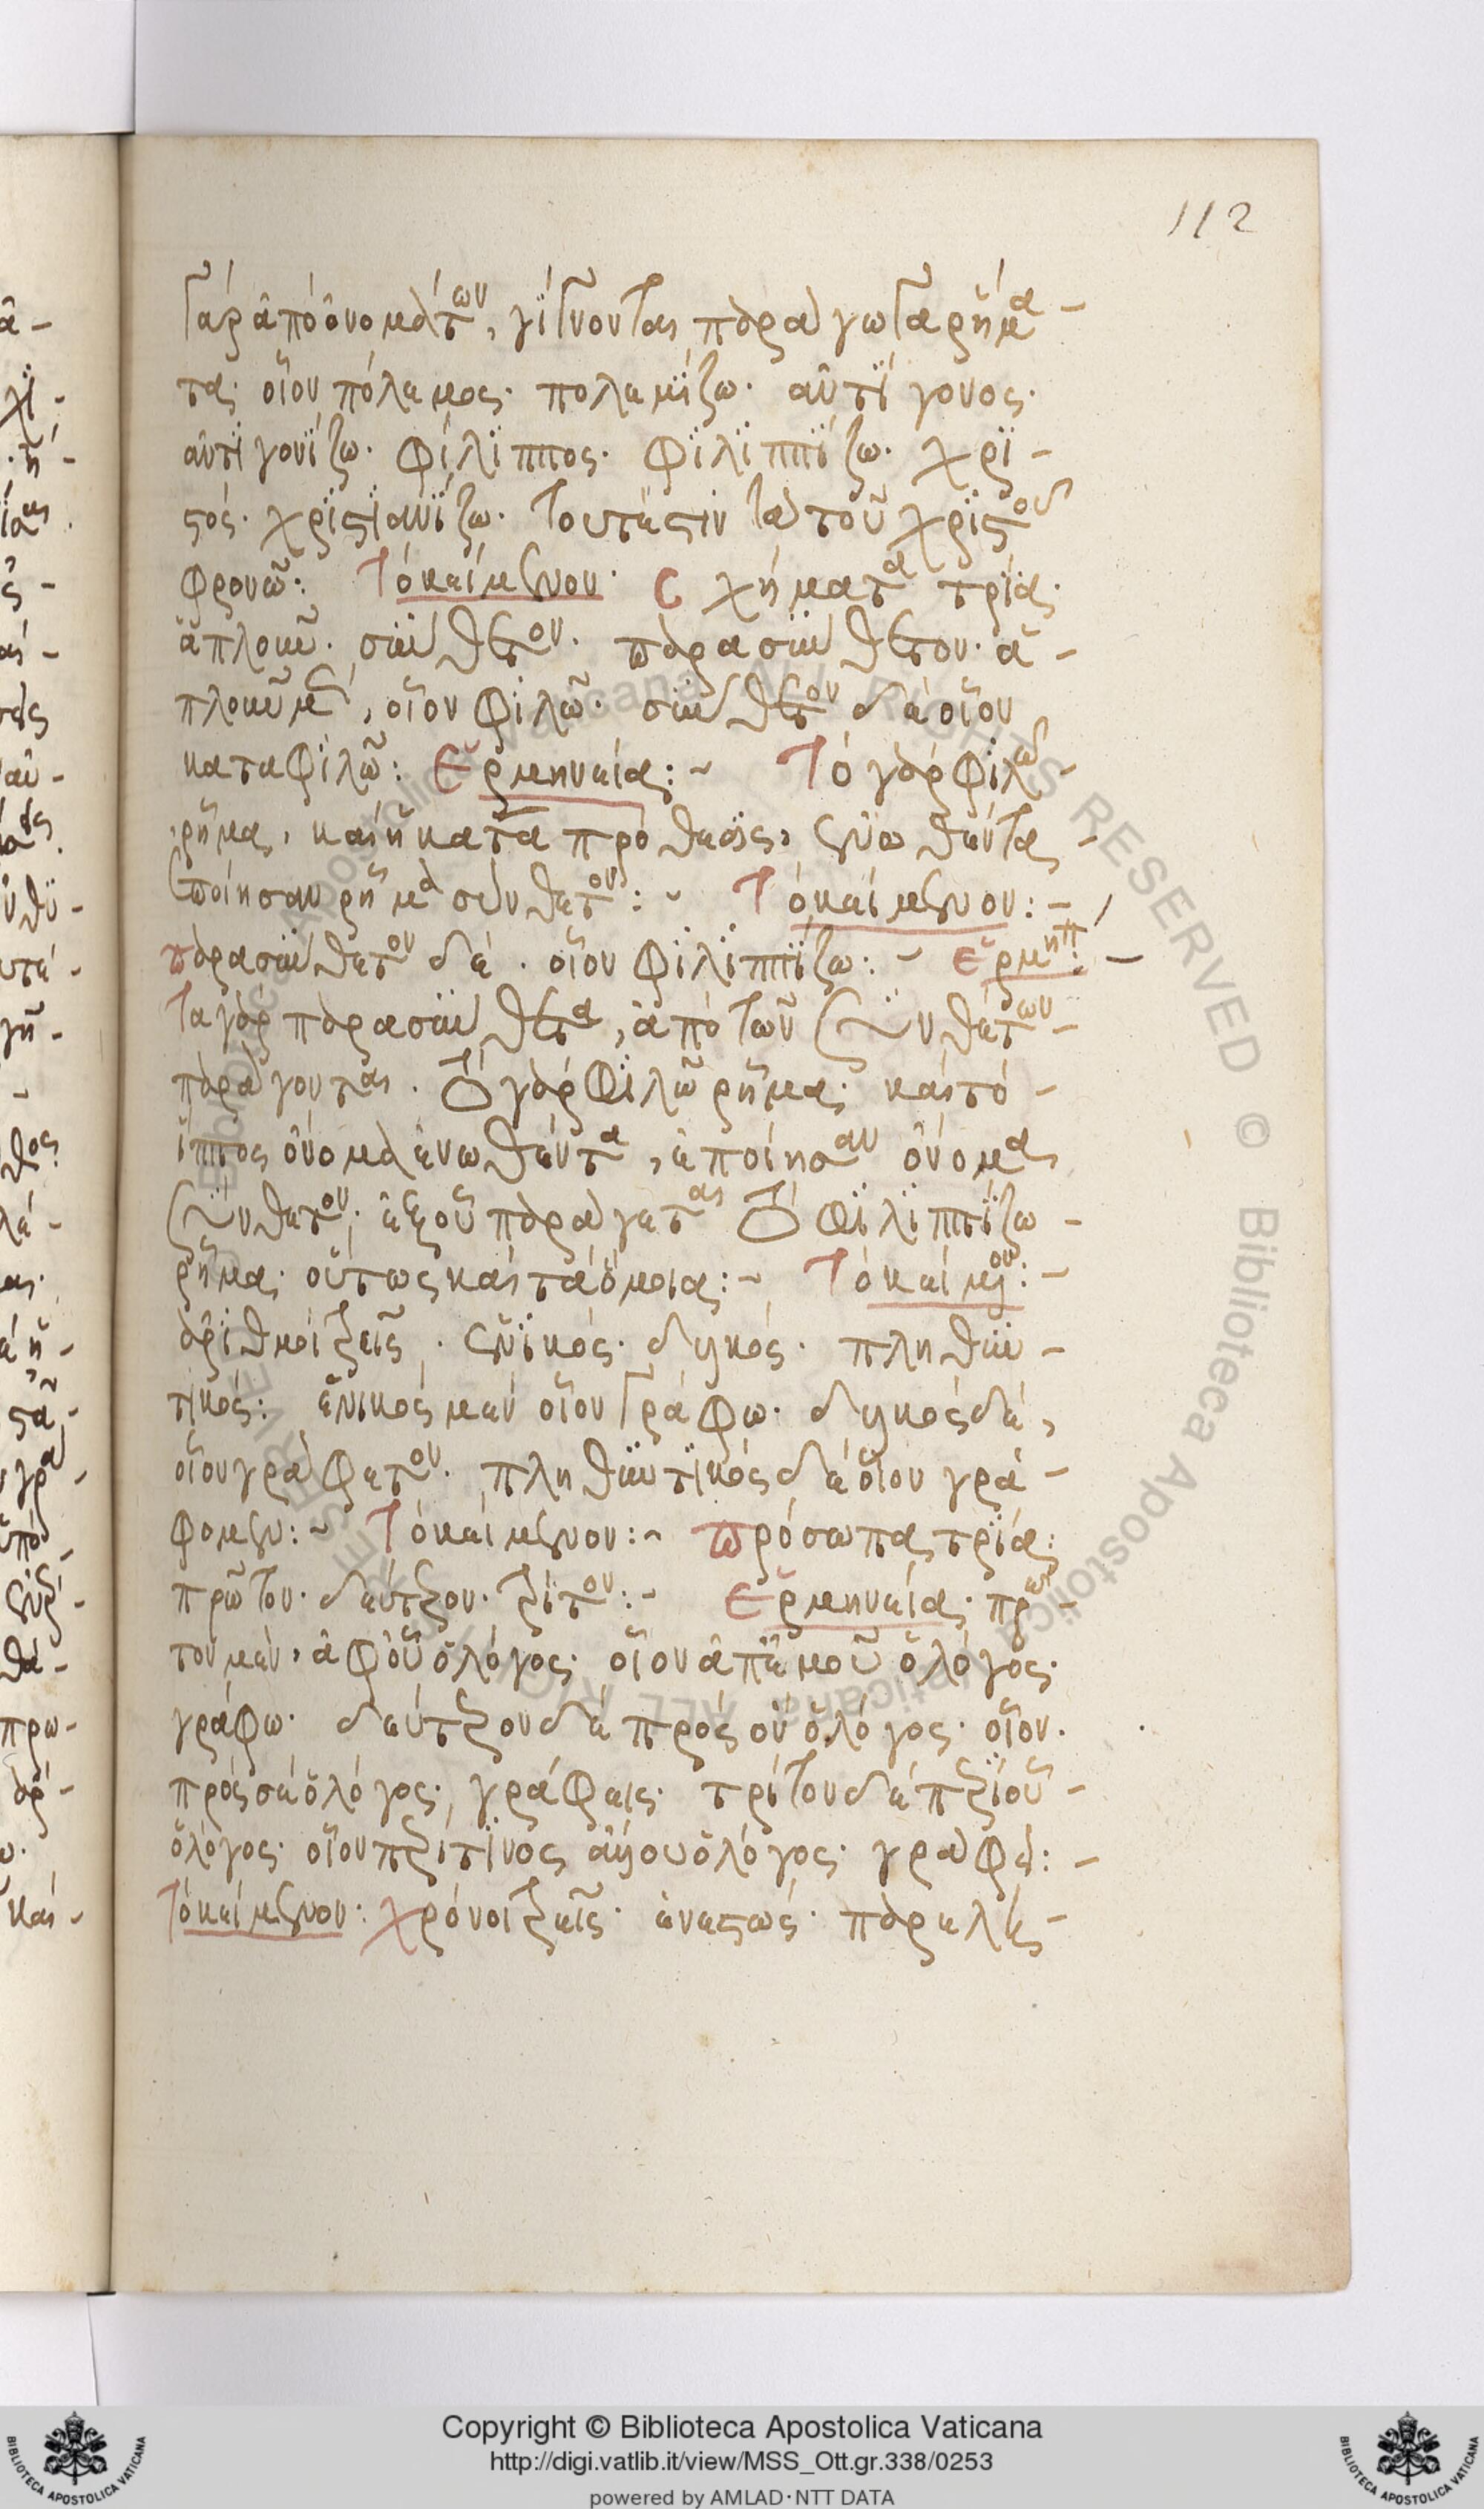 112
γὰρ ἀπὸ ὀνομάτων, γίγνονται παράγωγα ρήμα-
τα· οἷον πόλεμος· πολεμίζω· ἀντίγονος·
ἀντιγονίζω· φίλιππος· φιλιππίζω· χρι-
στός· χριστιανίζω· τουτέστιν τὰ τοῦ χριστοῦ
φρονῶ: Τὸ κείμενον· Σχήματα τρία·
ἁπλοῦν· σύνθετον· παρασύνθετον· ἁ-
πλοῦν μὲν, οἷον φιλῶ· σύνθετον δὲ οἷον
καταφιλῶ: Ἑρμηνεία:~ Τὸ γὰρ φιλῶ-
ρῆμα, καὶ ἡ κατὰ πρόθεσις, ἑνωθέντα-
ἐποίησαν ρῆμα σύνθετον:~ Τὸ κείμενον:-
παρασύνθετον δέ· οἷον φιλιππίζω:~ ἑρμην:-
Τὰ γὰρ παρασύνθετα, ἀπὸ τῶν συνθέτων-
παράγονται. Τὸ γὰρ φιλῶ ρῆμα· καὶ τὸ-
ἵππος ὄνομα ἑνωθέντα, ἐποίησαν ὄνομα
σύνθετον· ἐξ οὗ παράγεται τὸ φιλιππίζω-
ρῆμα· οὕτως καὶ τὰ ὅμοια:~ Τὸ κείμενον:-
ἀριθμοὶ τρεῖς· ἑνικός· δυϊκός· πληθυν-
τικός: ἑνικὸς μὲν οἷον γράφω· δυϊκὸς δὲ,
οἷον γράφετον· πληθυντικὸς δὲ οἷον γρά-
φομεν:~ Τὸ κείμενον:~ πρόσωπα τρία:
πρῶτον· δεύτερον· τρίτον:~ Ἑρμηνεία· πρῶ-
τον μὲν, ἀφ' οὗ ὁ λόγος· οἷον ἀπ' ἐμοῦ ὁ λόγος·
γράφω· δεύτερον δὲ πρὸς ὃν ὁ λόγος· οἷον·
πρὸς σὲ ὁ λόγος, γράφεις· τρίτον δὲ περὶ οὗ-
ὁ λόγος· οἷον περί τινος ἄλλου ὁ λόγος· γράφει:-
Τὸ κείμενον: χρόνοι τρεῖς· ἐνεστώς· παρελη-
Copyright © Biblioteca Apostolica Vaticana
http://digi.vatlib.it/view/MSS_Ott.gr.338/0253
powered by AMLAD·NTT DATA